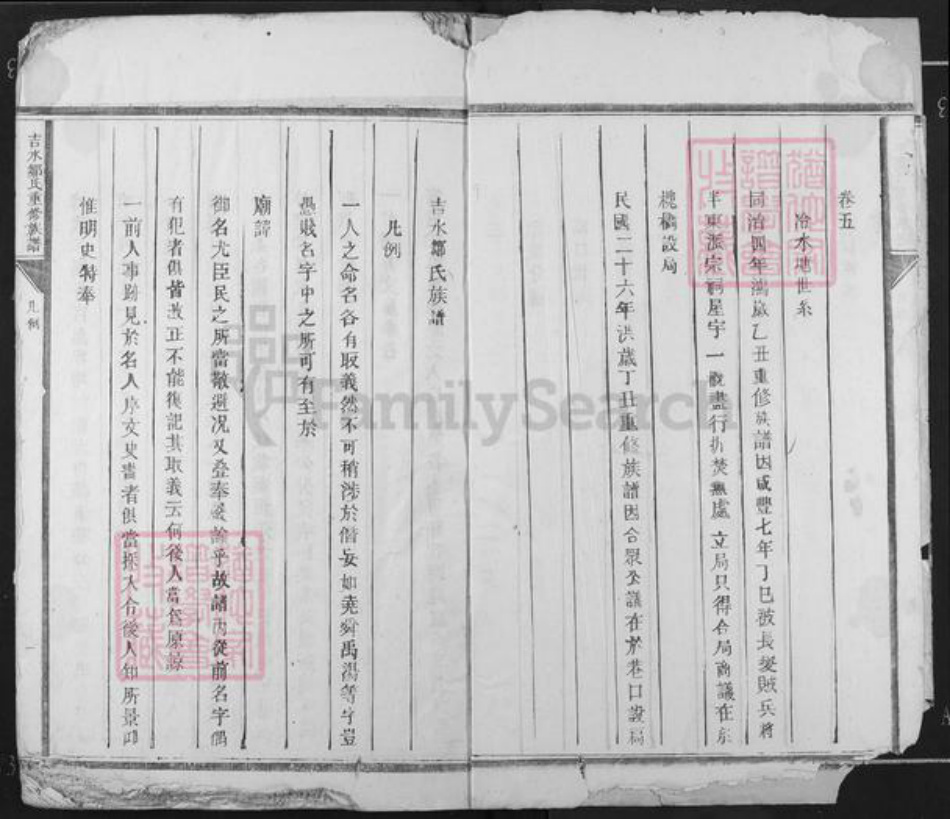 卷五
冷水地世系
同治四年鴻歲乙丑重修族譜因咸豐七年丁巳被長髮賊兵將
半東派宗祠星宇一概盡行折焚無處立局只得合局商議在東
槐橘設局
民國二十六年洪歲丁丑重修族譜因合眾公議在於巷口設局
吉水鄒氏族譜
凡例
一人之命名各有取義然不可稍涉於僭妄如堯舜禹湯等字豈
愚賤名字中之所可有至於
廟諱
御名尤臣民之所當敬避况又叠奉 諭乎故譜內從前名字偶
有犯者俱皆改正不能復記其取義云何後人當 原諒
一前人事跡見於名人序文史書者俱當採入令後人知所景仰
惟明史特奉
吉水鄒氏重修族譜
凡例
FamilySearch